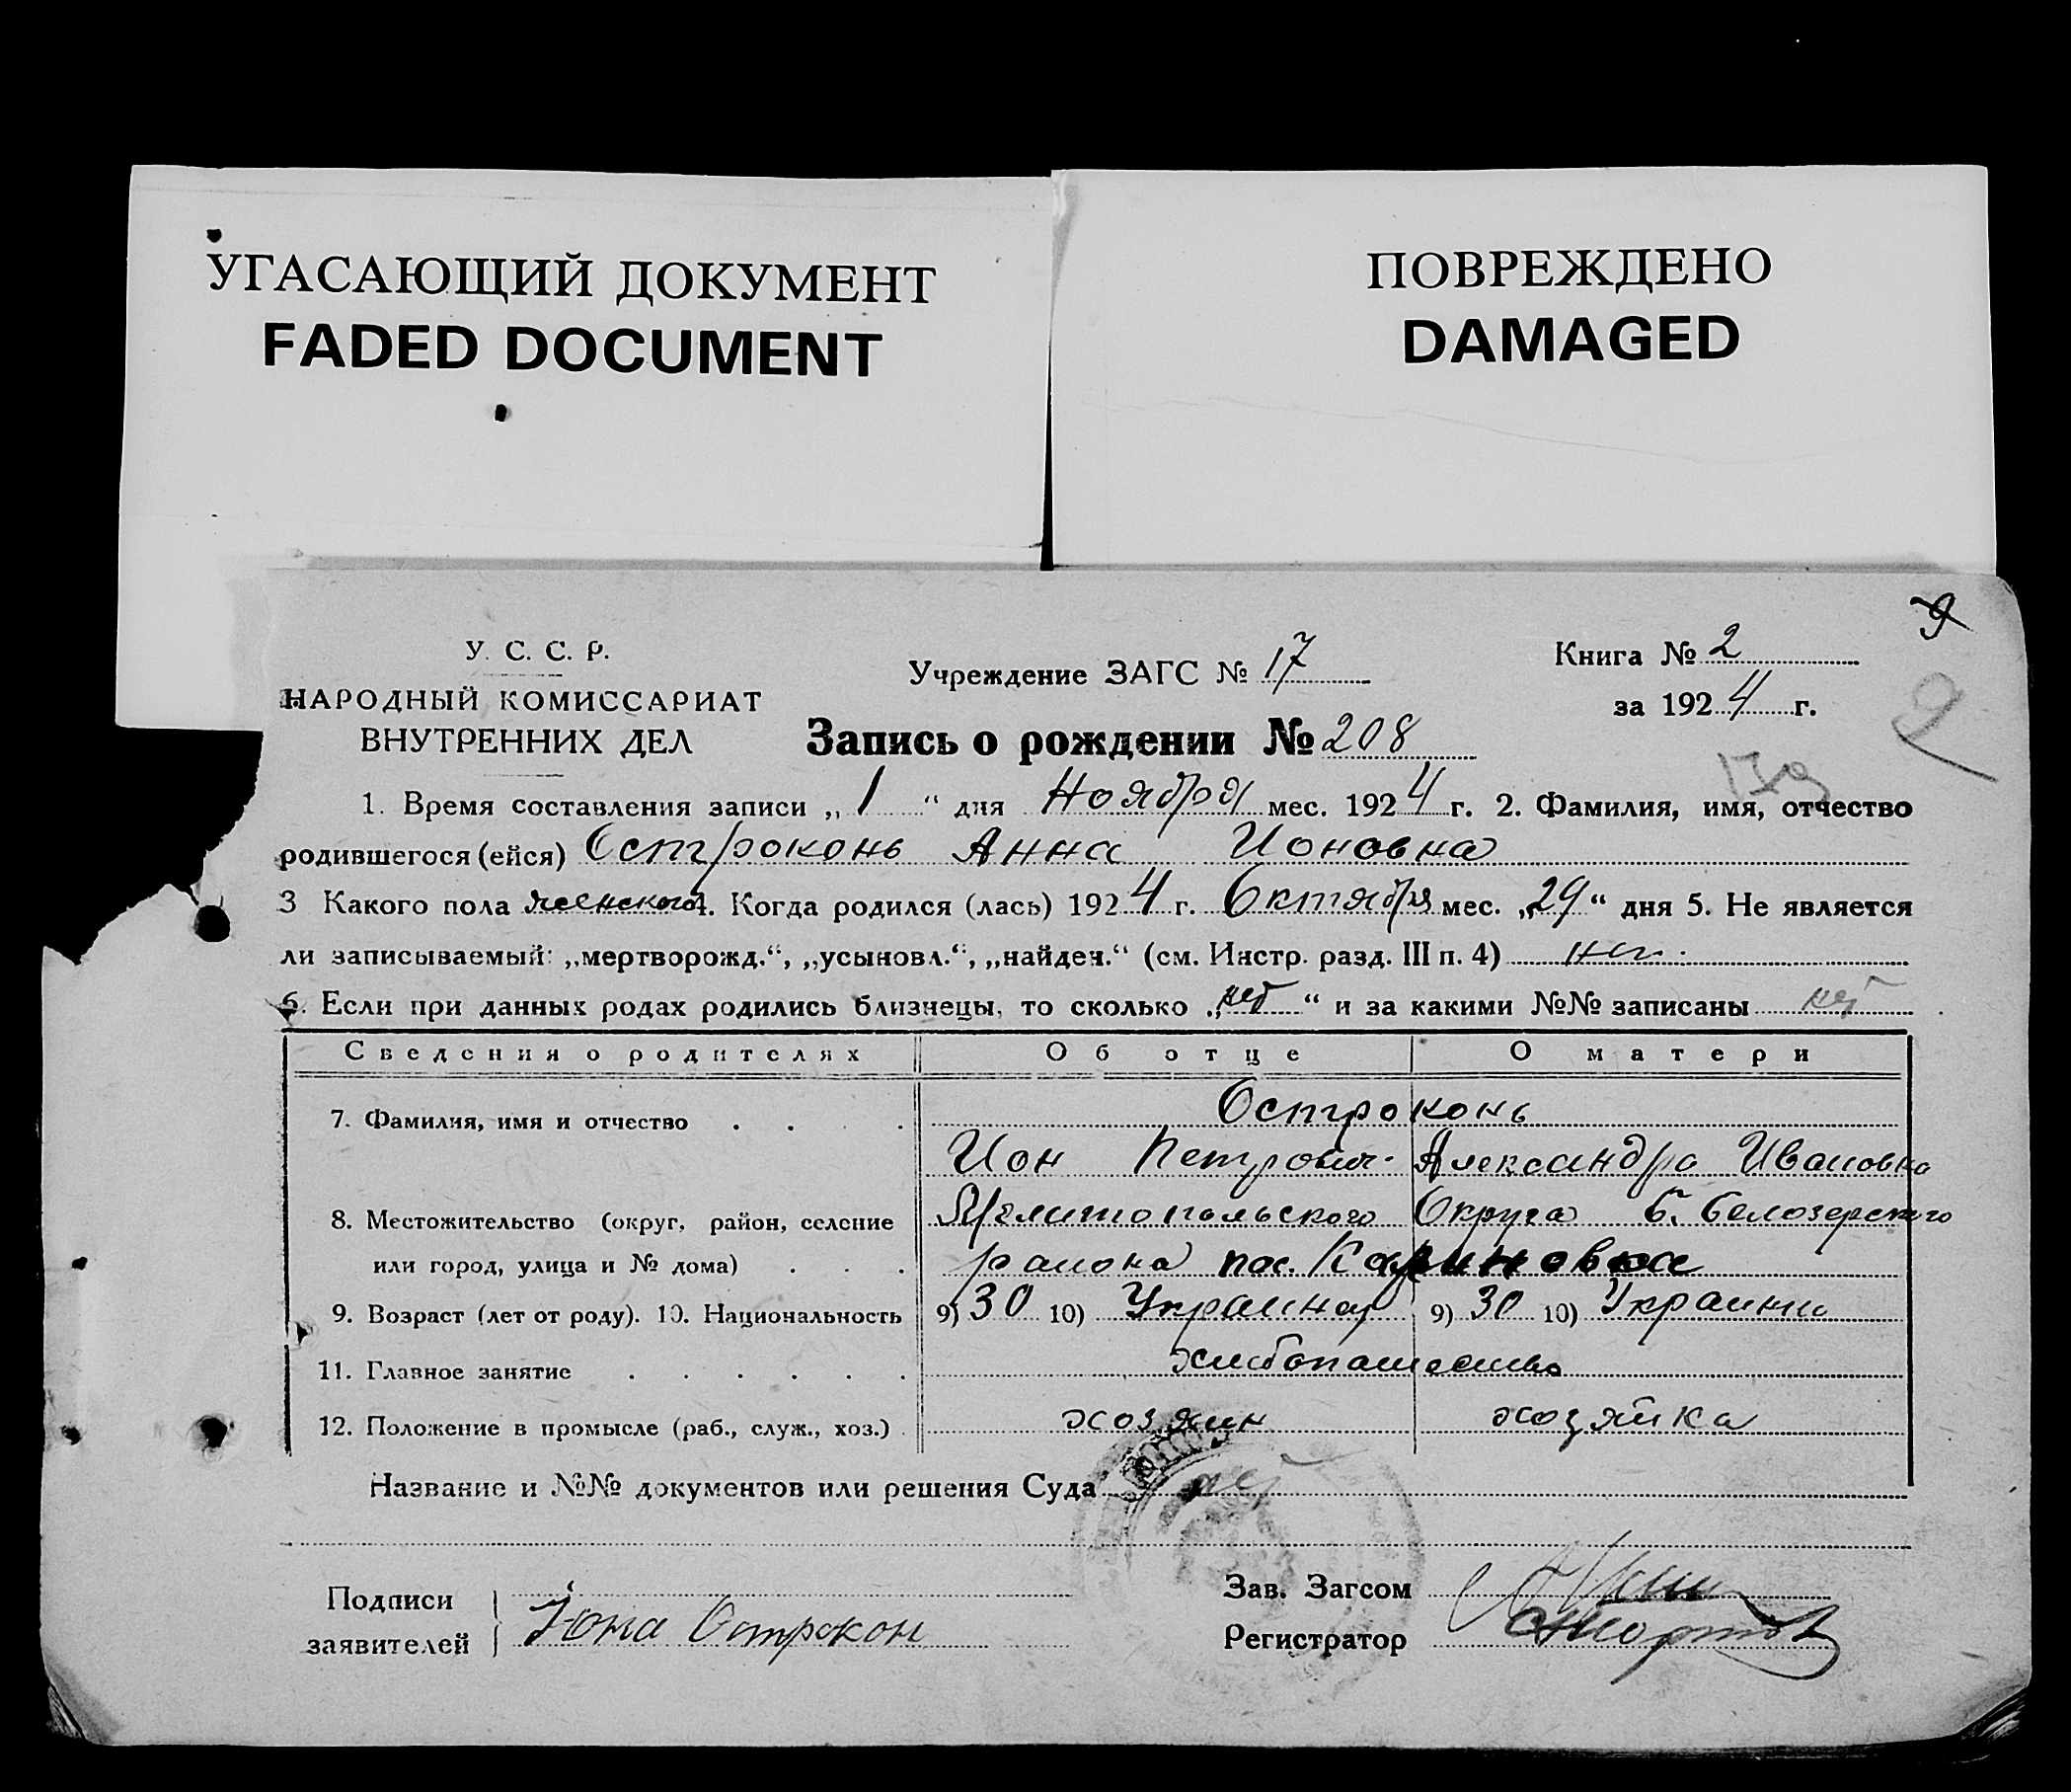 УГАСАЮЩИЙ ДОКУМЕНТ
FADED DOCUMENT
ПОВРЕЖДЕНО
DAMAGED
9
У. С. С. Р.
НАРОДНЫЙ КОМИССАРИАТ
ВНУТРЕННИХ ДЕЛ
Учреждение ЗАГС № 17
Книга № 2
за 1924 г.
9
Запись о рождении № 208
179
1. Время составления записи „1“ дня Ноября мес. 1924 г. 2. Фамилия, имя, отчество
родившегося (ейся) Остроконь Анна Ионовна
3 Какого пола женского 4. Когда родился (лась) 1924 г. Октября мес. „29“ дня 5. Не является
ли записываемый: „мертворожд.“, „усыновл.“, „найден.“ (см. Инстр. разд. III п. 4)
6. Если при данных родах родились близнецы, то сколько „нет“ и за какими №№ записаны нет
Сведения о родителях Об отце О матери
7. Фамилия, имя и отчество . . . . Остроконь
Ион Петрович Александра Ивановна
8. Местожительство (округ, район, селение Мелитопольского Округа Б. Белозерского
или город, улица и № дома) . . . района пос.
9. Возраст (лет от роду). 10. Национальность 9) 30 10) 9) 30 10)
11. Главное занятие . . . . . . хлебопашество
12. Положение в промысле (раб., служ., хоз.) . хозяин хозяйка
Название и №№ документов или решения Суда нет
Подписи
заявителей Иона Острокон
Зав. Загсом
Регистратор